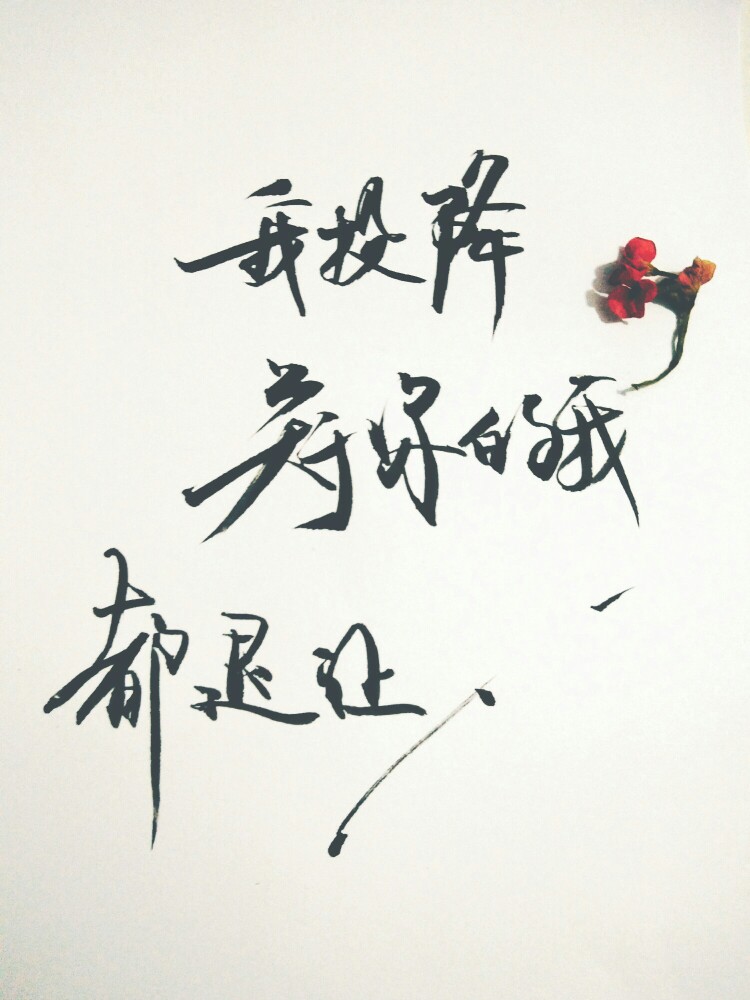 我投降
并好的我
都退让